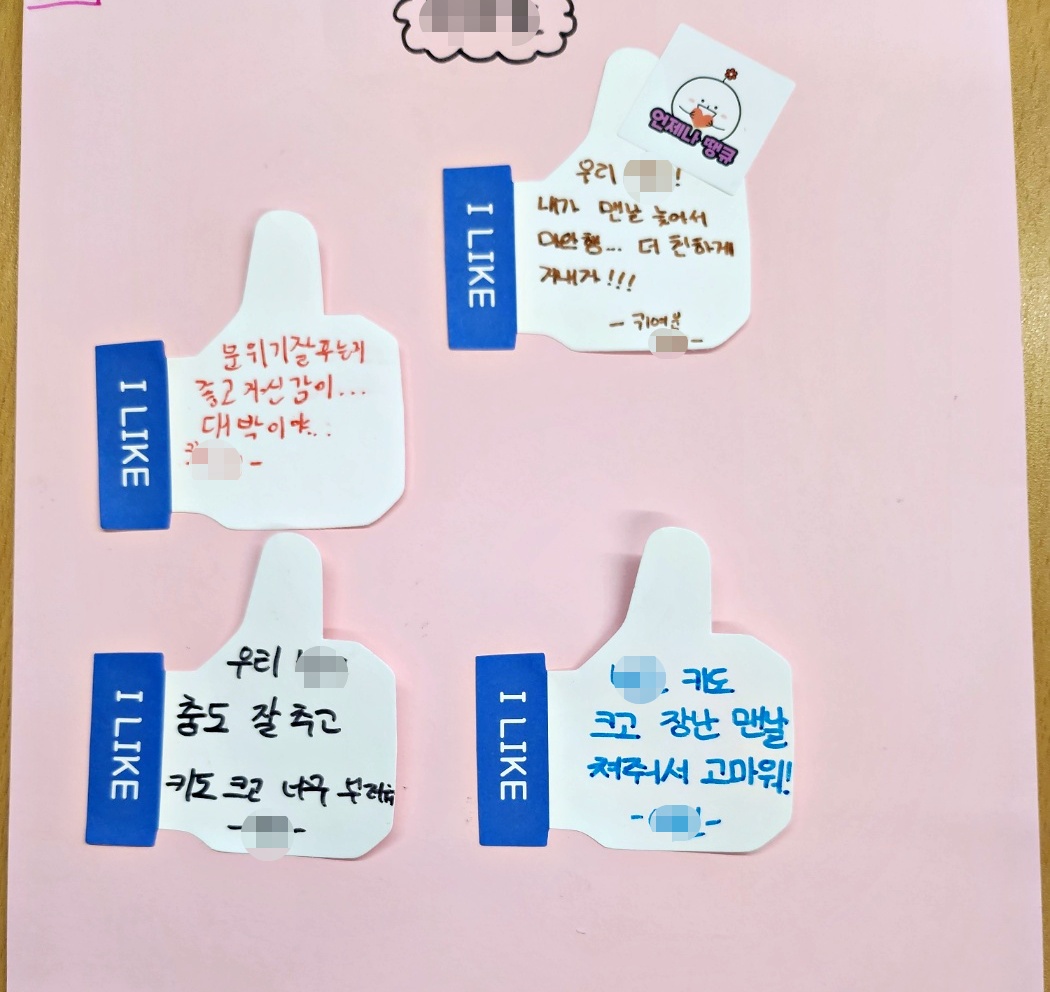 언제나 땡큐
우리 !
내가 맨날 늦어서
미안행... 더 친하게
지내자!!!
- 귀여운
-
I LIKE
분위기잘푸는지
좋고 자신감이...
대박이야...
-
I LIKE
우리
춤도 잘 추고
키도 크고 너무 부러워
- -
I LIKE
키도
크고 장난 맨날
쳐줘서 고마워!
- -
I LIKE